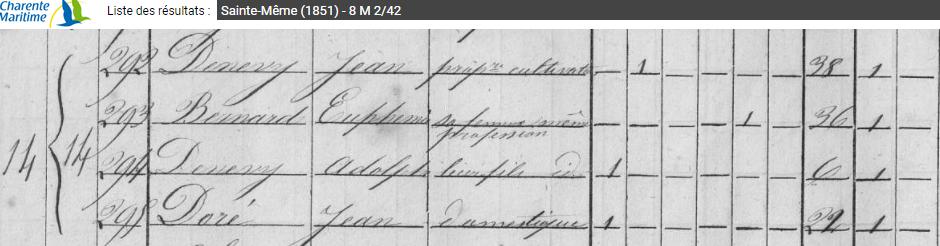 Charente Maritime
Liste des résultats : Sainte-Même (1851) - 8 M 2/42
292 Denevy Jean prop.re cultivateur 1 38 1
293 Bernard Euphémie sa femme même profession 1 36 1
14 14
294 Denevy Adolphe leur fils id 1 6 1
295 Doré Jean domestique 1 1